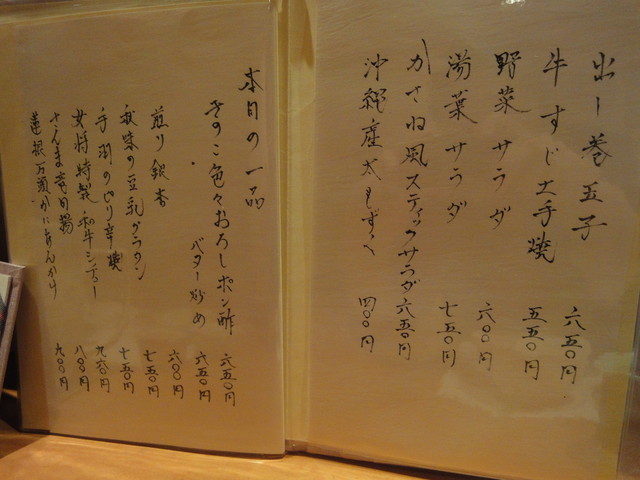 出し巻玉子 六五〇円
牛すじ土手焼 五五〇円
野菜サラダ 六〇〇円
湯葉サラダ 七五〇円
かさね風スティックサラダ 六五〇円
沖縄産太もずく 四〇〇円
本日の一品
きのこ色々おろしポン酢 六五〇円
・ バター炒め 六五〇円
煎り銀杏 六〇〇円
秋味の豆乳グラタン 七五〇円
手羽のピリ辛焼 七五〇円
女将特製和牛シチュー 九六〇円
さんま竜田揚 八〇〇円
蓮根万頭かにあんかけ 九〇〇円